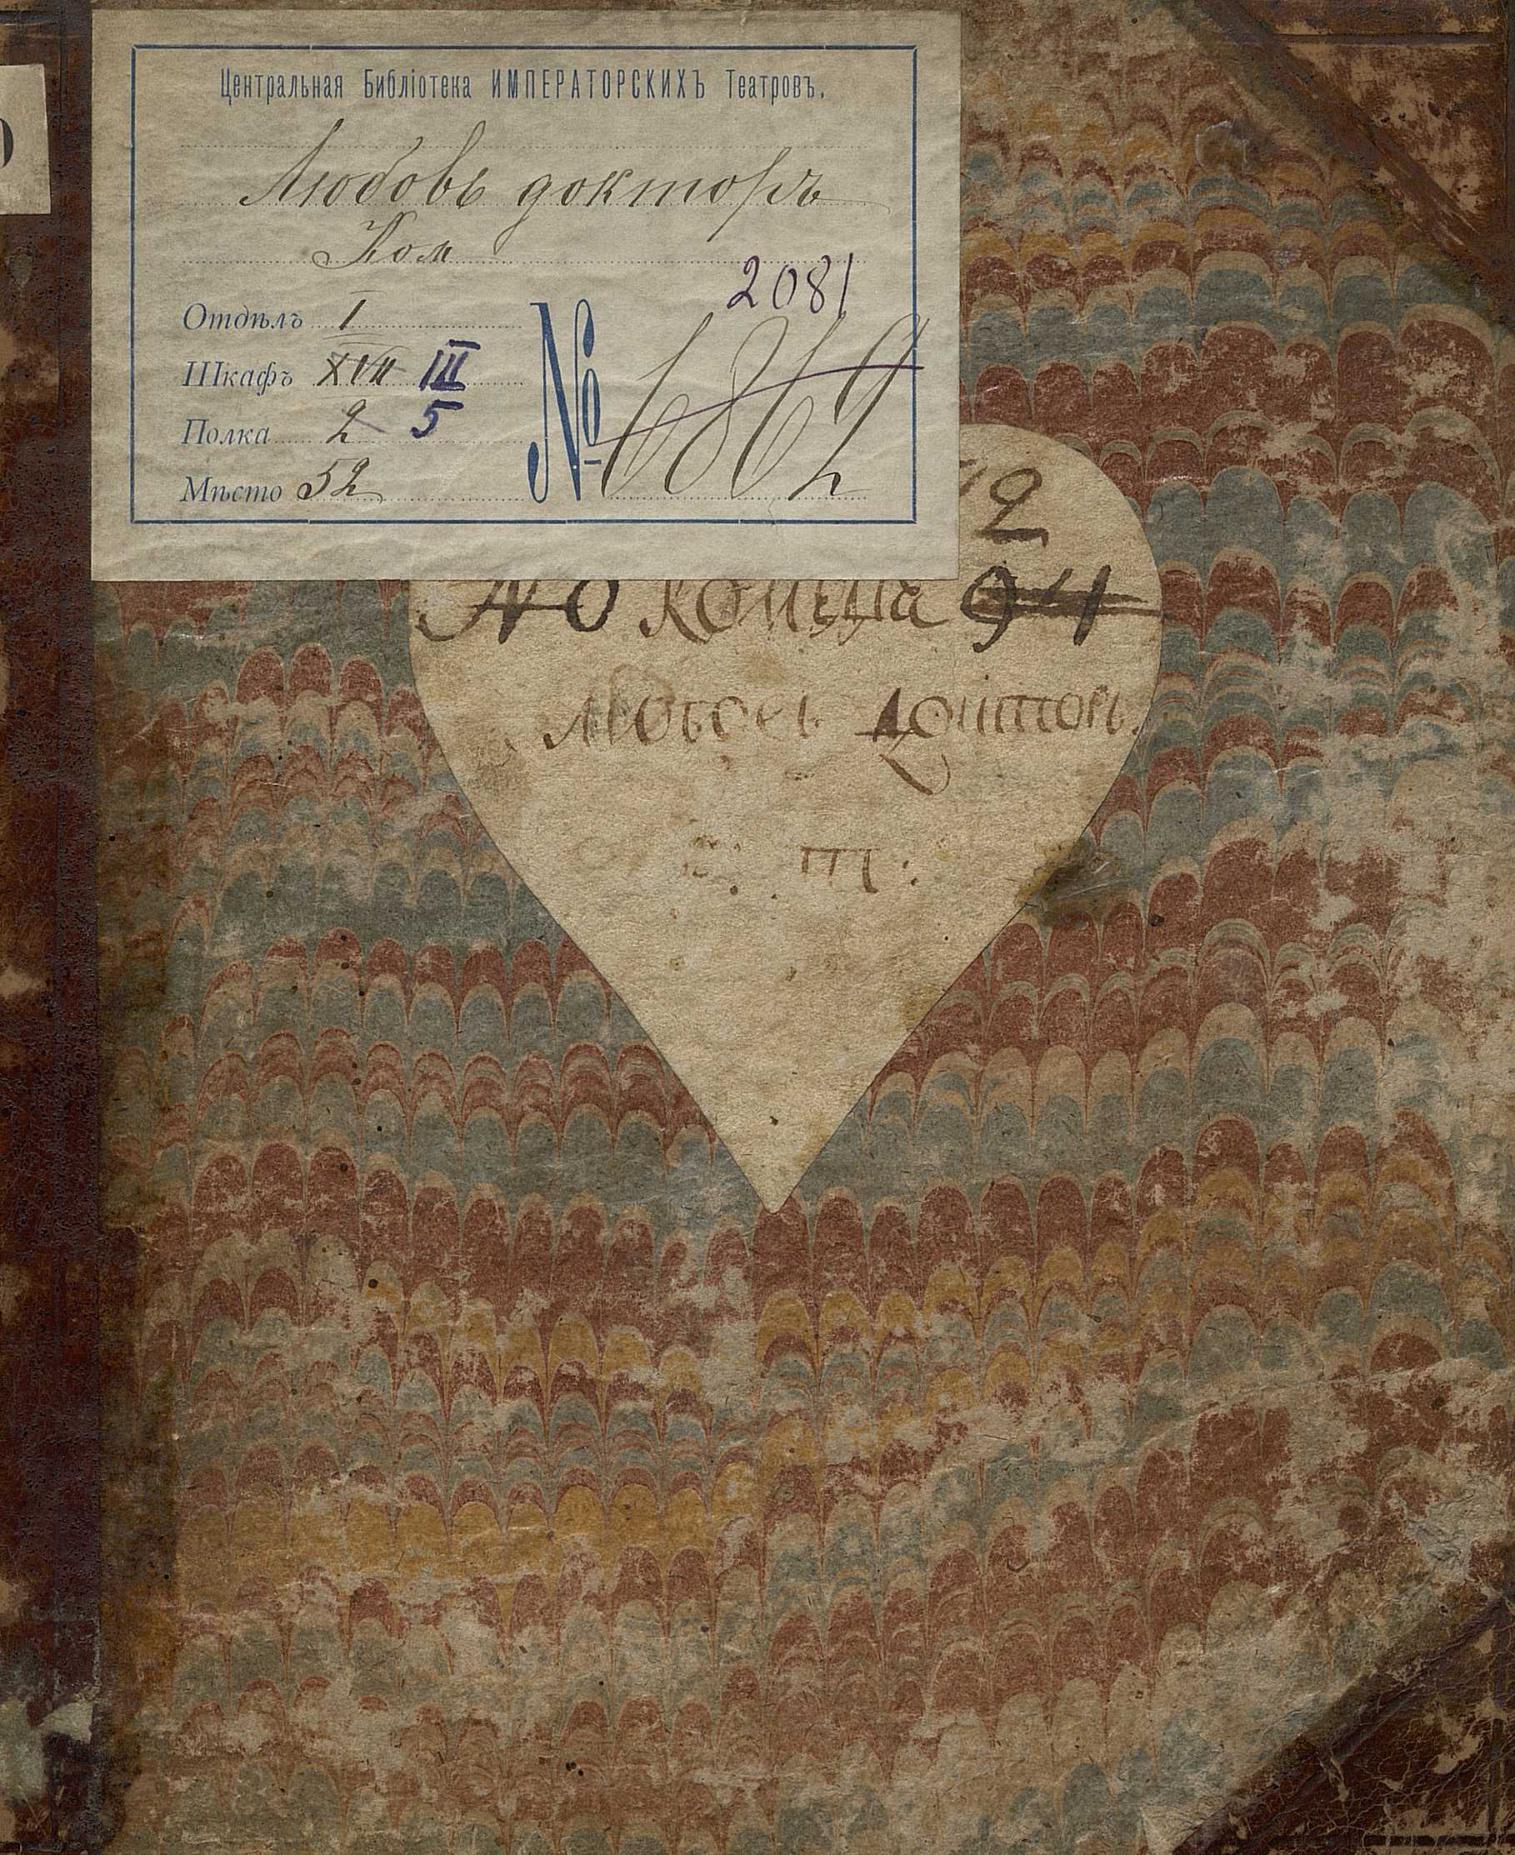 Центральная Библіотека ИМПЕРАТОРСКИХЪ Театровъ.
Любовь докторъ
Ком
2081
Отдѣлъ I
Шкафъ XVII III
Полка 2 5
Мѣсто 52
№ 6862
12
NO комедіа 94
Любовь Докторъ.
П